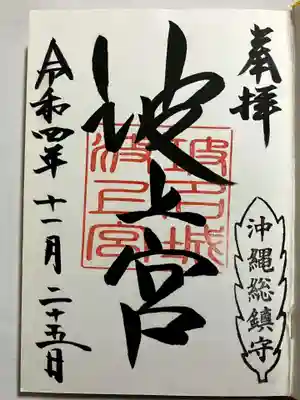 奉拝
沖縄総鎮守
波上宮
波上宮
令和四年十一月二十五日